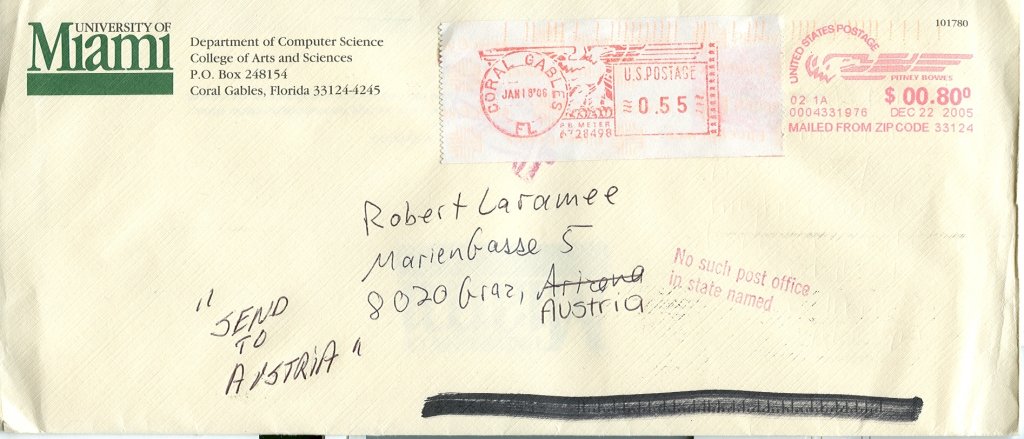 UNIVERSITY OF
Miami
Department of Computer Science
College of Arts and Sciences
P.O. Box 248154
Coral Gables, Florida 33124-4245
CORAL GABLES
JAN 18 '06
FL
U.S. POSTAGE
0.55
P.B. METER
6728498
101780
UNITED STATES POSTAGE
PITNEY BOWES
02 1A
$ 00.80⁰
0004331976
DEC 22 2005
MAILED FROM ZIP CODE 33124
Robert Laramee
MarienGasse 5
8020 Graz, Arizona
Austria
No such post office
in state named
"SEND
TO
AUSTRIA"